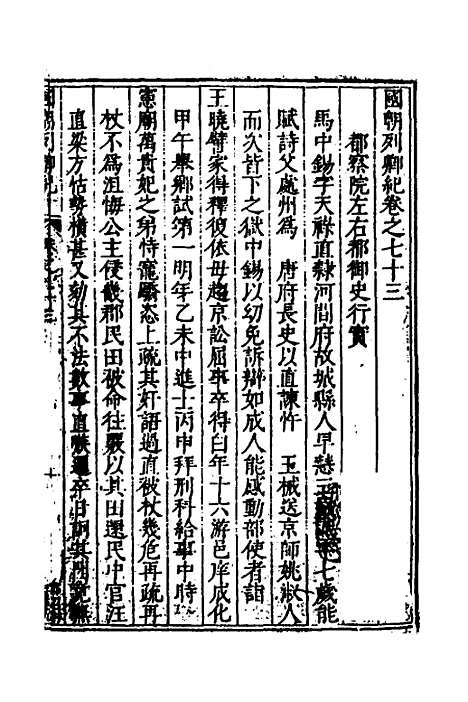 國朝列卿紀卷之七十三
都察院左右都御史行實
馬中錫字天祿直隸河間府故城縣人早慧七歲能
賦詩父處州為 唐府長史以直諫忤 王械送京師姚淑人
而次皆下之獄中錫以幼免訴辯如成人能感動部使者詣
王曉譬家得釋復依母趨京訟屈事卒得白年十六游邑庠成化
甲午舉鄉試第一明年乙未中進士丙申拜刑科給事中時
憲廟萬貴妃之弟恃寵驕恣上疏其奸語過直被杖幾危再疏再
杖不為沮悔公主侵畿郡民田被命往覈以其田還民中官汪
直梁方怙勢橫甚又劾其不法數事直
國朝列卿紀